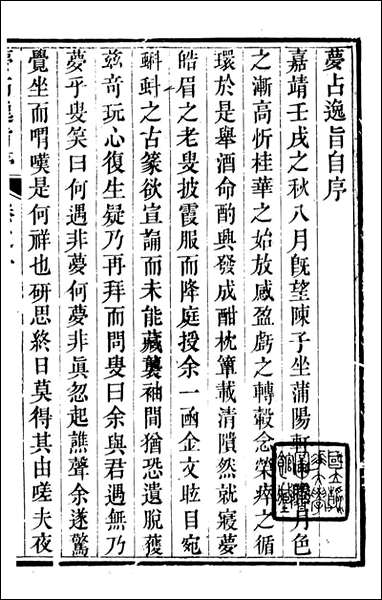 夢占逸旨自序
嘉靖壬戌之秋八月旣望陳子坐蒲陽軒月色
之漸高忻桂華之始放感盈虧之轉轂念榮瘁之循
環於是舉酒命酌興發成酣枕簟載清隤然就寢夢
皓眉之老叟披霞服而降庭授余一函金文眩目宛
蝌蚪之古篆欲宣讀而未能藏襲袖間猶恐遺脫獲
玆奇玩心復生疑乃再拜而問叟曰余與君遇無乃
夢乎叟笑曰何遇非夢何夢非眞忽起譙聲余遂驚
覺坐而喟嘆是何祥也硏思終日莫得其由嗟夫夜